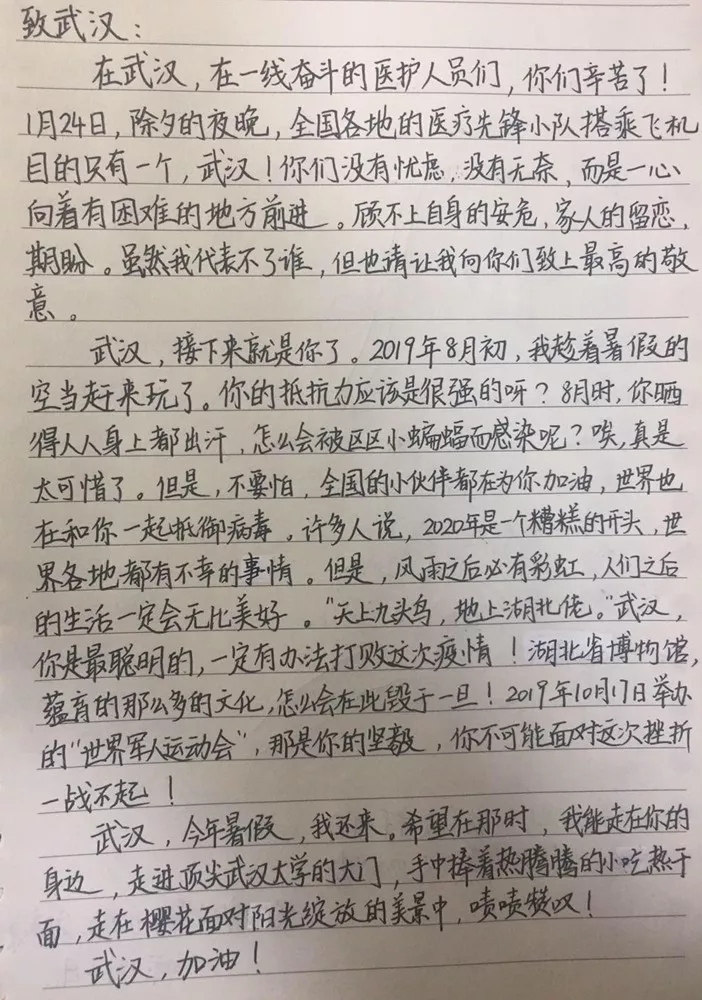 致武汉：
在武汉，在一线奋斗的医护人员们，你们辛苦了！
1月24日，除夕的夜晚，全国各地的医疗先锋小队搭乘飞机
目的只有一个，武汉！你们没有忧虑，没有无奈，而是一心
向着有困难的地方前进。顾不上自身的安危，家人的留恋，
期盼。虽然我代表不了谁，但也请让我向你们致上最高的敬
意。
武汉，接下来就是你了。2019年8月初，我趁着暑假的
空当赶来玩了。你的抵抗力应该是很强的呀？8月时，你晒
得人人身上都出汗，怎么会被区区小蝙蝠而感染呢？唉，真是
太可惜了。但是，不要怕，全国的小伙伴都在为你加油，世界也
在和你一起抵御病毒。许多人说，2020年是一个糟糕的开头，世
界各地都有不幸的事情。但是，风雨之后必有彩虹，人们之后
的生活一定会无比美好。“天上九头鸟，地上湖北佬。”武汉，
你是最聪明的，一定有办法打败这次疫情！湖北省博物馆，
蕴育的那么多的文化，怎么会在此毁于一旦！2019年10月17日举办
的“世界军人运动会”，那是你的坚毅，你不可能面对这次挫折
一战不起！
武汉，今年暑假，我还来。希望在那时，我能走在你的
身边，走进顶尖武汉大学的大门，手中捧着热腾腾的小吃热干
面，走在樱花面对阳光绽放的美景中，啧啧赞叹！
武汉，加油！